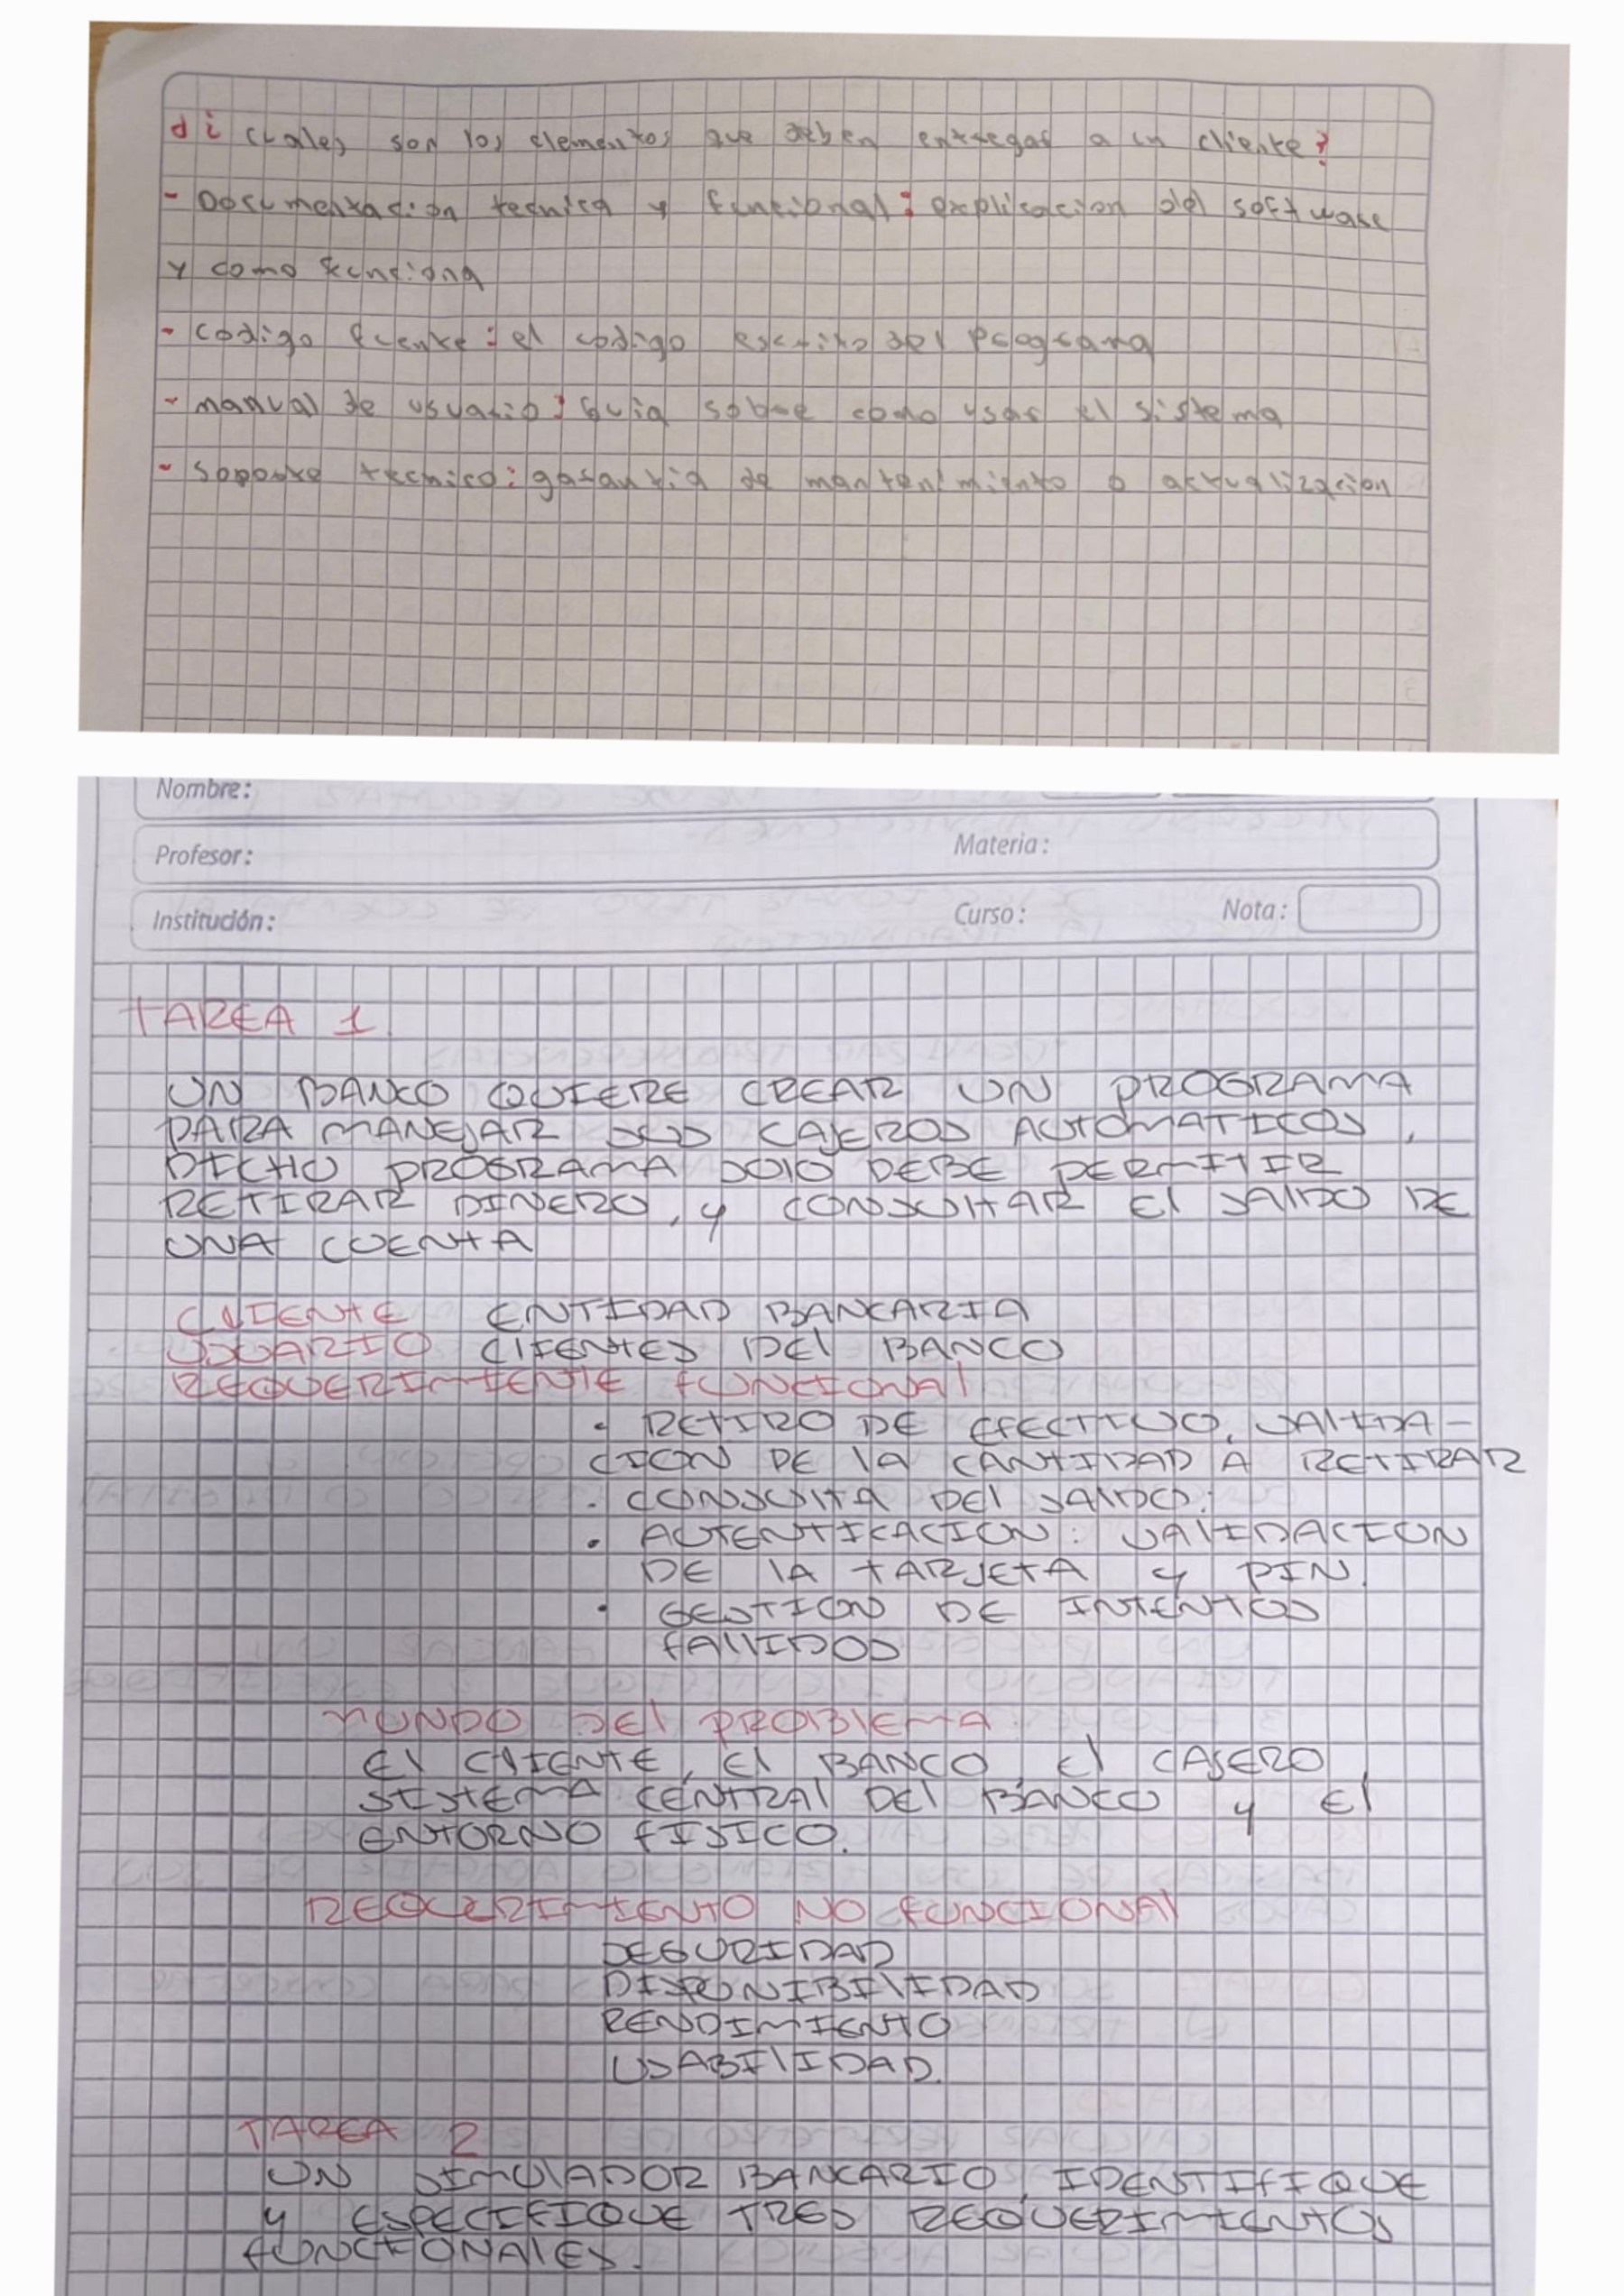 d ¿ cuales son los elementos que deben entregar a un cliente?
- Documentacion tecnica y funcional: explicacion del software
y como funciona
- codigo fuente: el codigo escrito del programa
- manual de usuario: Guia sobre como usar el sistema
- soporte tecnico: garantia de mantenimiento o actualizacion
Nombre:
Profesor: Materia:
Institución: Curso: Nota:
TAREA 1.
UN BANCO QUIERE CREAR UN PROGRAMA
PARA MANEJAR SUS CAJEROS AUTOMATICOS,
DICHO PROGRAMA SOlO DEBE PERMITIR
RETIRAR DINERO, y CONSULTAR El SALDO DE
UNA CUENTA
CLIENTE ENTIDAD BANCARIA
USUARIO ClIENTES DEl BANCO
REQUERIMIENTE FUNCIONAl
• RETIRO DE EFECTIVO, VAlIDA-
CION DE lA CANTIDAD A RETIRAR
• CONSUlTA DEl SAlDO:
• AUTENTICACION: VAlIDACION
DE lA TARJETA y PIN.
• GESTION DE INTENTOS
FAllIDOS
MUNDO DEl PROBlEMA
El ClIENTE, El BANCO, El CAJERO,
SISTEMA CENTRAl DEl BANCO y El
ENTORNO FISICO.
REQUERIMIENTO NO FUNCIONAl
SEGURIDAD
DISPONIBIlIDAD
RENDIMIENTO
USABIlIDAD.
TAREA 2
UN SIMUlADOR BANCARIO, IDENTIFIQUE
y ESPECIFIQUE TRES REQUERIMIENTOS
FUNCIONAlES.